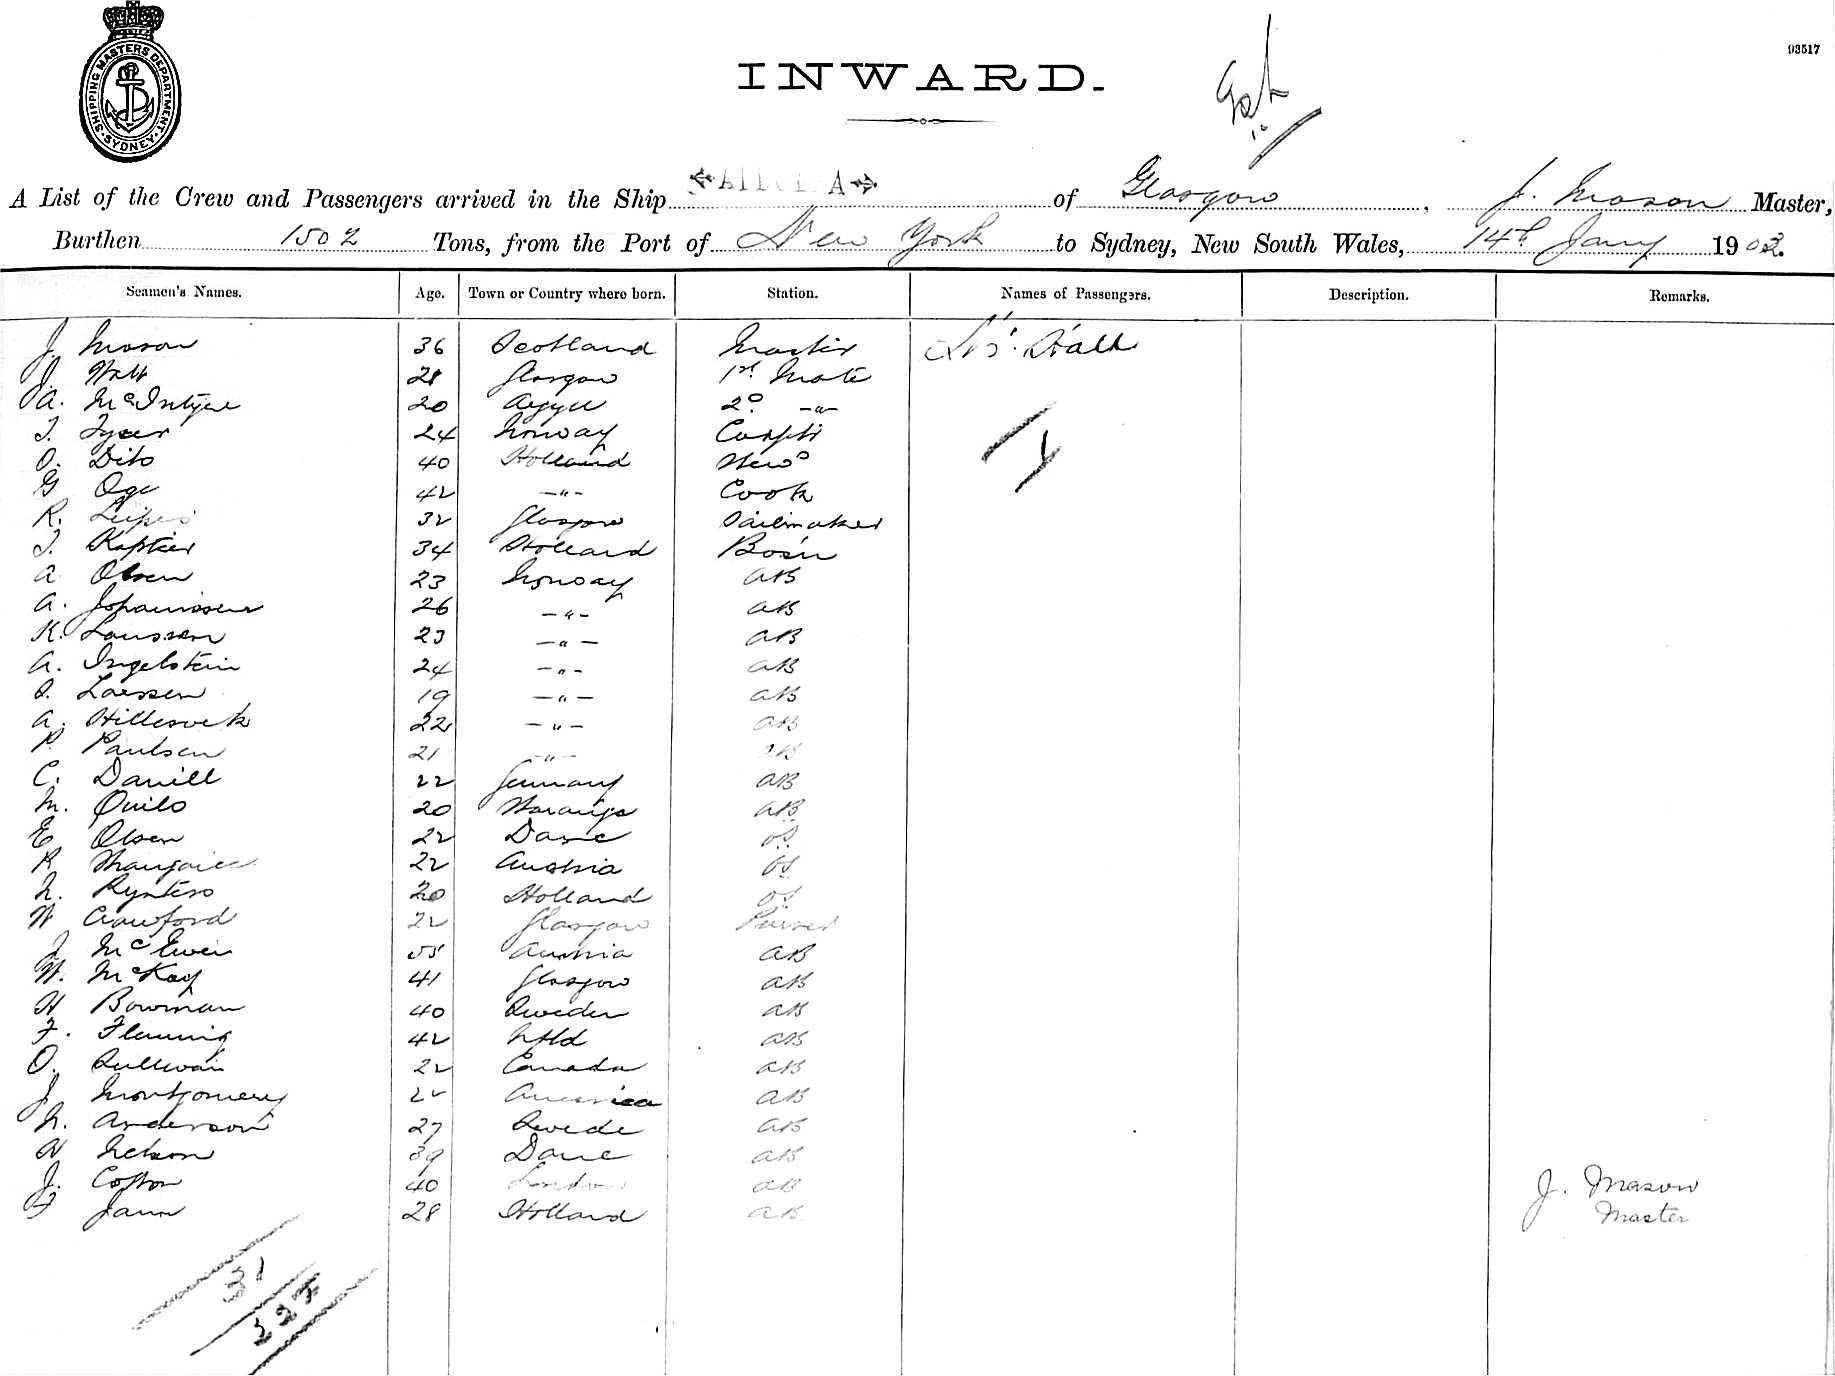 SHIPPING MASTERS DEPARTMENT
SYDNEY
INWARD.
03517
A List of the Crew and Passengers arrived in the Ship of Glasgow, J. Mason Master,
Burthen 1502 Tons, from the Port of New York to Sydney, New South Wales, 14th Jany 1903.
Seamen's Names. Age. Town or Country where born. Station. Names of Passengers. Description. Remarks.
J. Mason 36 Scotland Master Hall
J. Watt 28 Glasgow 1st Mate
A. McIntyre 20 Argyll 2° -"-
24 Norway Carptr
O. Dito 40 Holland Stewd
G Oge 42 -"- Cook
R. 32 Glasgow Sailmaker
J. Kapteir 34 Holland Bosn
A Olsen 23 Norway AB
A. Johannssen 26 -"- AB
K. Laussen 23 -"- AB
A. Ingelstein 24 -"- AB
Larssen 19 -"- AB
A. Hillesvek 22 -"- AB
P. Paulsen 21 -"- AB
C. Daniell 22 Germany AB
M. Quilo 20 AB
E Olsen 22 Dane OS
R 22 Austria OS
N. Rynters 20 Holland OS
W Crawford 22 Glasgow Purser
J McEwen 55 Austria AB
W. McKay 41 Glasgow AB
H Bowman 40 Sweden AB
F. Fleming 42 Nfld AB
O. Sullivan 22 Canada AB
J Montgomery 22 America AB
N. Anderson 27 Swede AB
H Nelson 39 Dane AB
J. Cofton 40 London AB
F Jann 28 Holland AB
J. Mason
Master
31